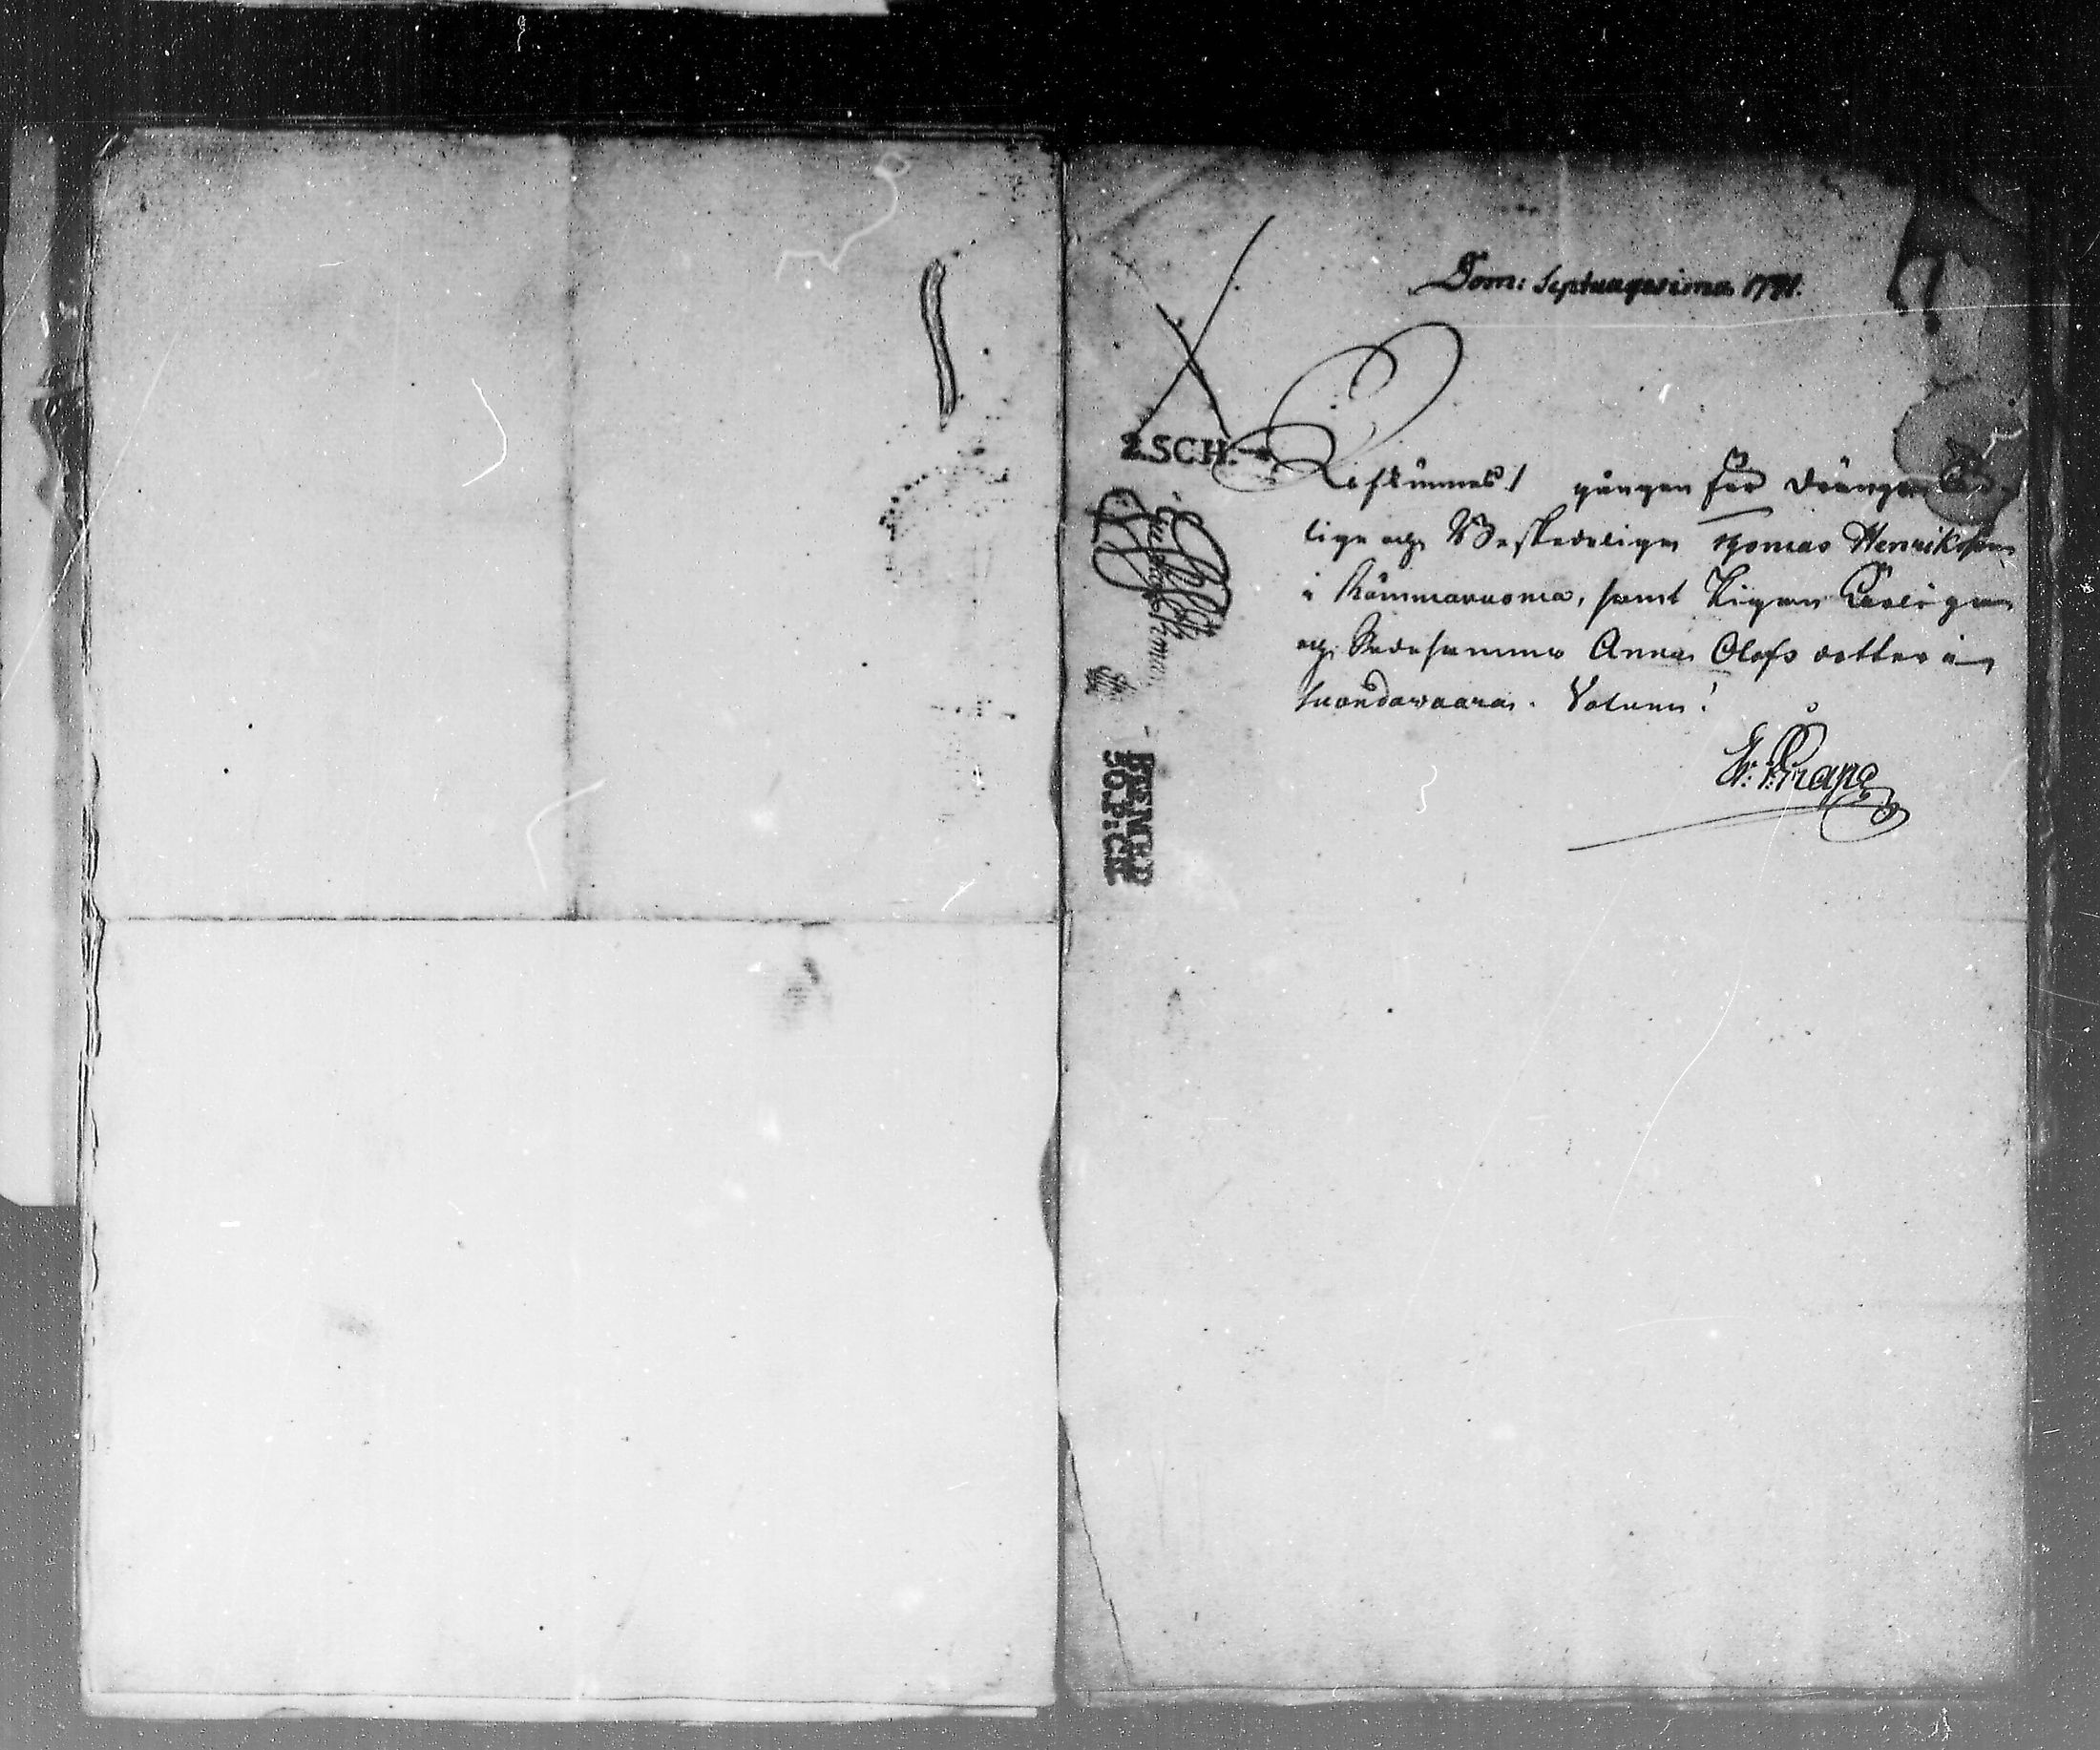 Dom: Septuagesima 1791.
2 SCH.
Afkunnes 1 gången för drängen
lige och Beskedelige Thomas Henriksson
i Kämmävuoma, samt Pigan Ärliga
och Sedesamma Anna Olofs dotter i
Suondavaara. Votum!
E. P. Grape